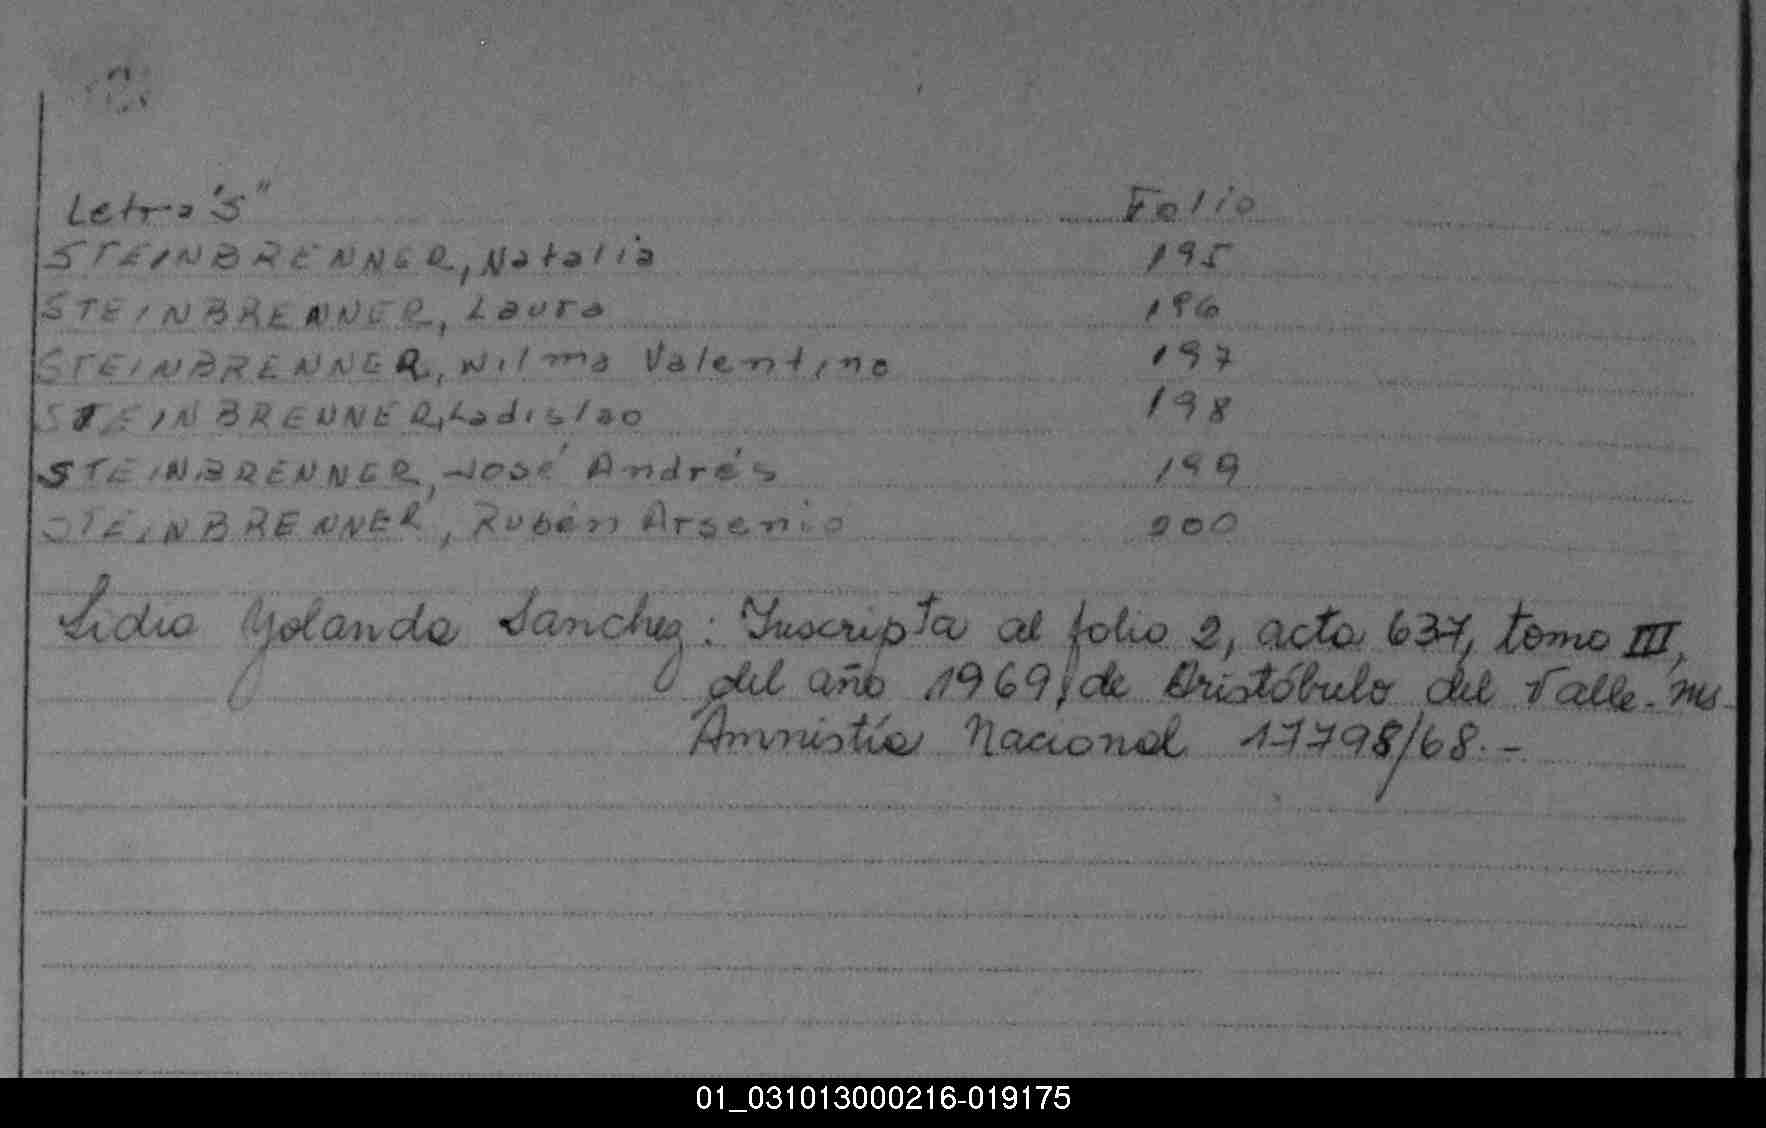 Letra "S" Folio
STEINBRENNER, Natalia 195
STEINBRENNER, Laura 196
STEINBRENNER, Wilma Valentina 197
STEINBRENNER, Ladislao 198
STEINBRENNER, José Andrés 199
STEINBRENNER, Rubén Arsenio 200
Lidia Yolanda Sanchez: Inscripta al folio 2, acta 637, tomo III,
del año 1969, de Aristóbulo del Valle. Ms.
Amnistía Nacional 17798/68.-
01_031013000216-019175